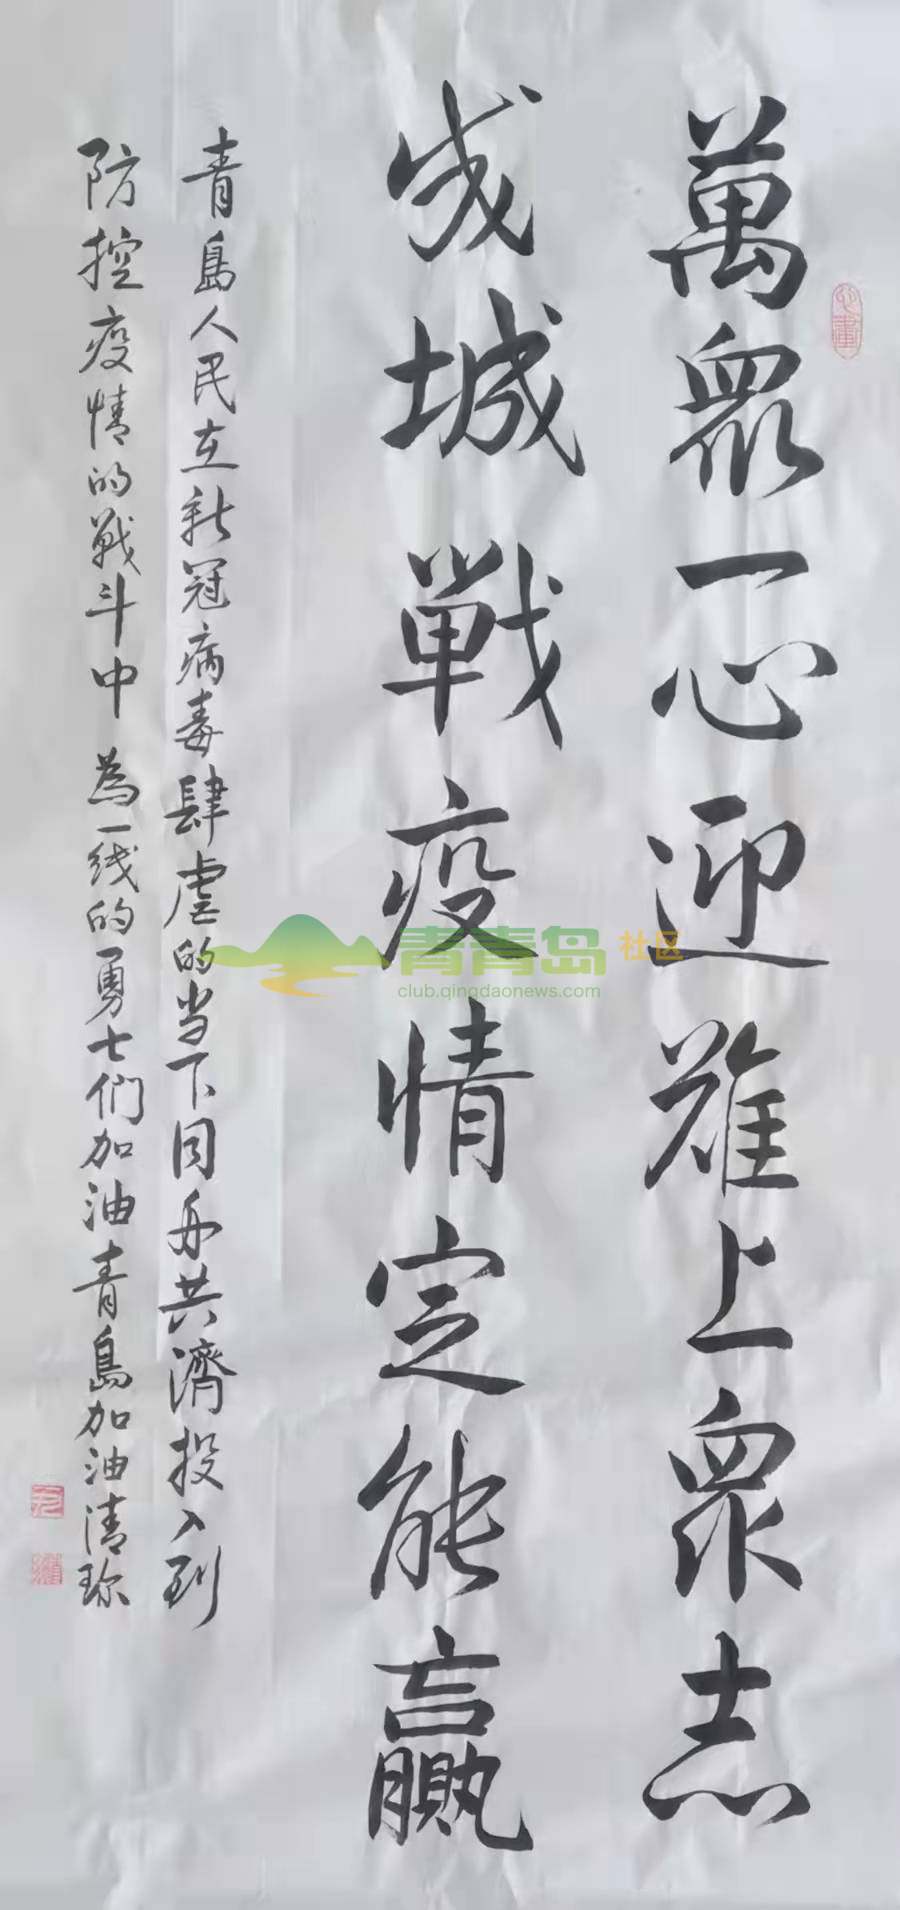 萬眾一心迎難上眾志
成城戰疫情定能贏
青島人民在新冠病毒肆虐的当下同舟共濟投入到
防控疫情的戰斗中為一线的勇士们加油青島加油清珎
青青岛社区
club.qingdaonews.com